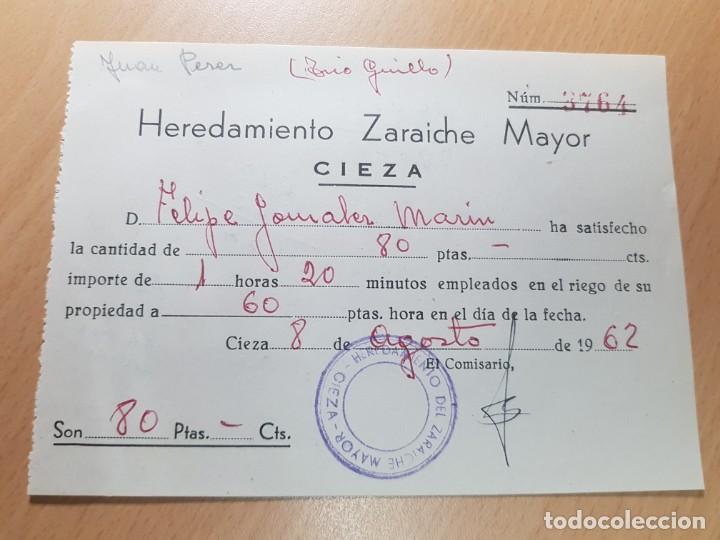 Juan Perez (Trio Guillo)
Núm. 3764
Heredamiento Zaraiche Mayor
CIEZA
D. Felipe Gonzalez Marin ha satisfecho
la cantidad de 80 ptas. - cts.
importe de 1 horas 20 minutos empleados en el riego de su
propiedad a 60 ptas. hora en el día de la fecha.
Cieza 8 de agosto de 1962
El Comisario,
HEREDAMIENTO DEL ZARAICHE MAYOR - CIEZA -
Son 80 Ptas. - Cts.
todocoleccion